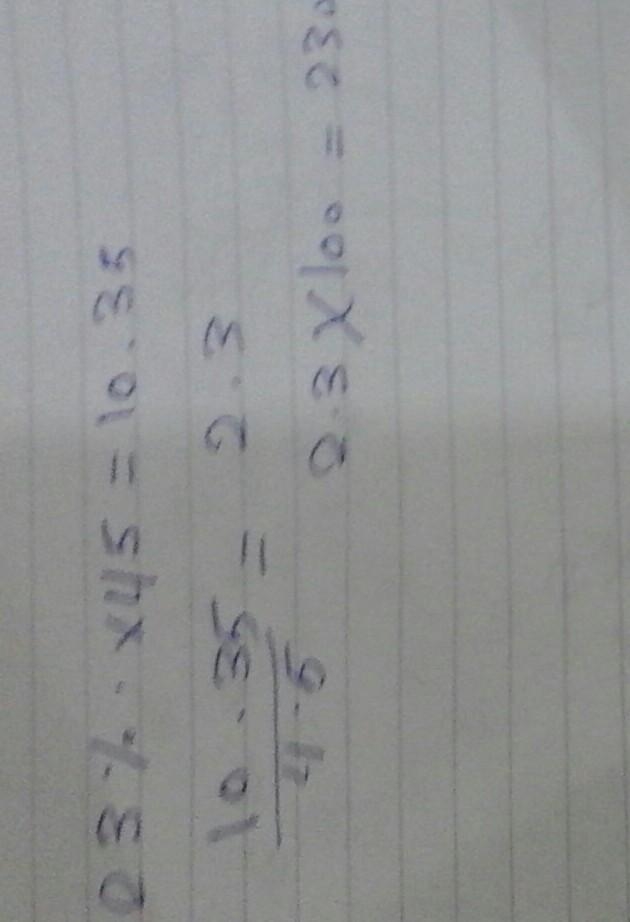 23%. x45 = 10.35
10.35 / 4.5 = 2.3
2.3 x 100 = 230